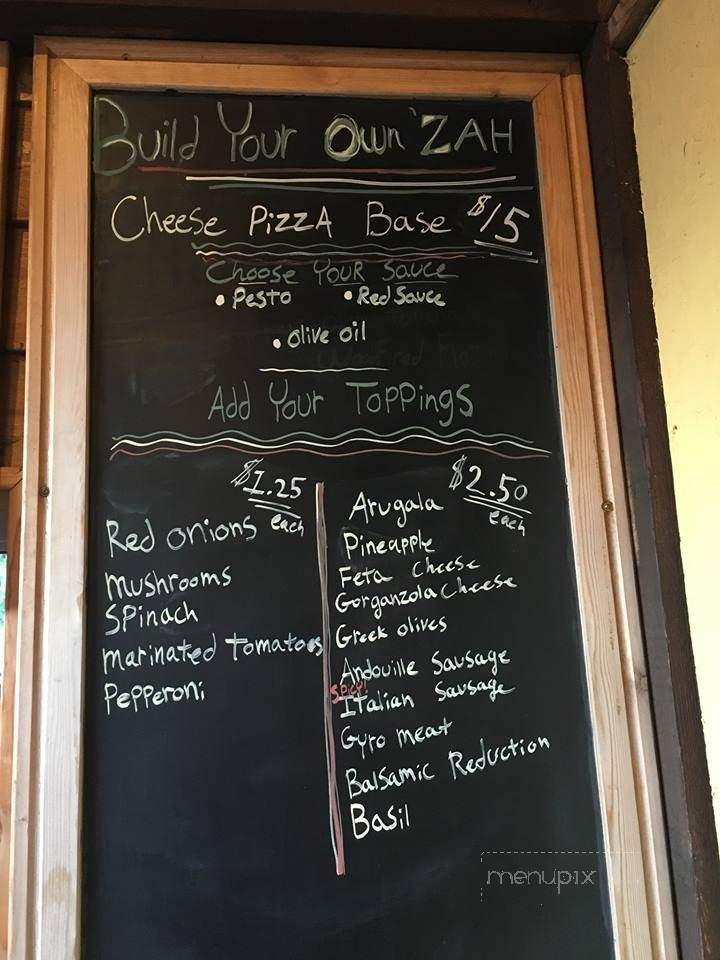 Build Your Own 'ZAH
Cheese PiZZA Base $15
Choose YOUR Sauce
• Pesto • Red Sauce
• Olive oil
Add Your Toppings
$1.25 each
Red onions
Mushrooms
Spinach
Marinated Tomatoes
Pepperoni
$2.50 each
Arugala
Pineapple
Feta Cheese
Gorganzola Cheese
Greek olives
Andouille Sausage
SPicy!
Italian Sausage
Gyro Meat
Balsamic Reduction
Basil
menupix